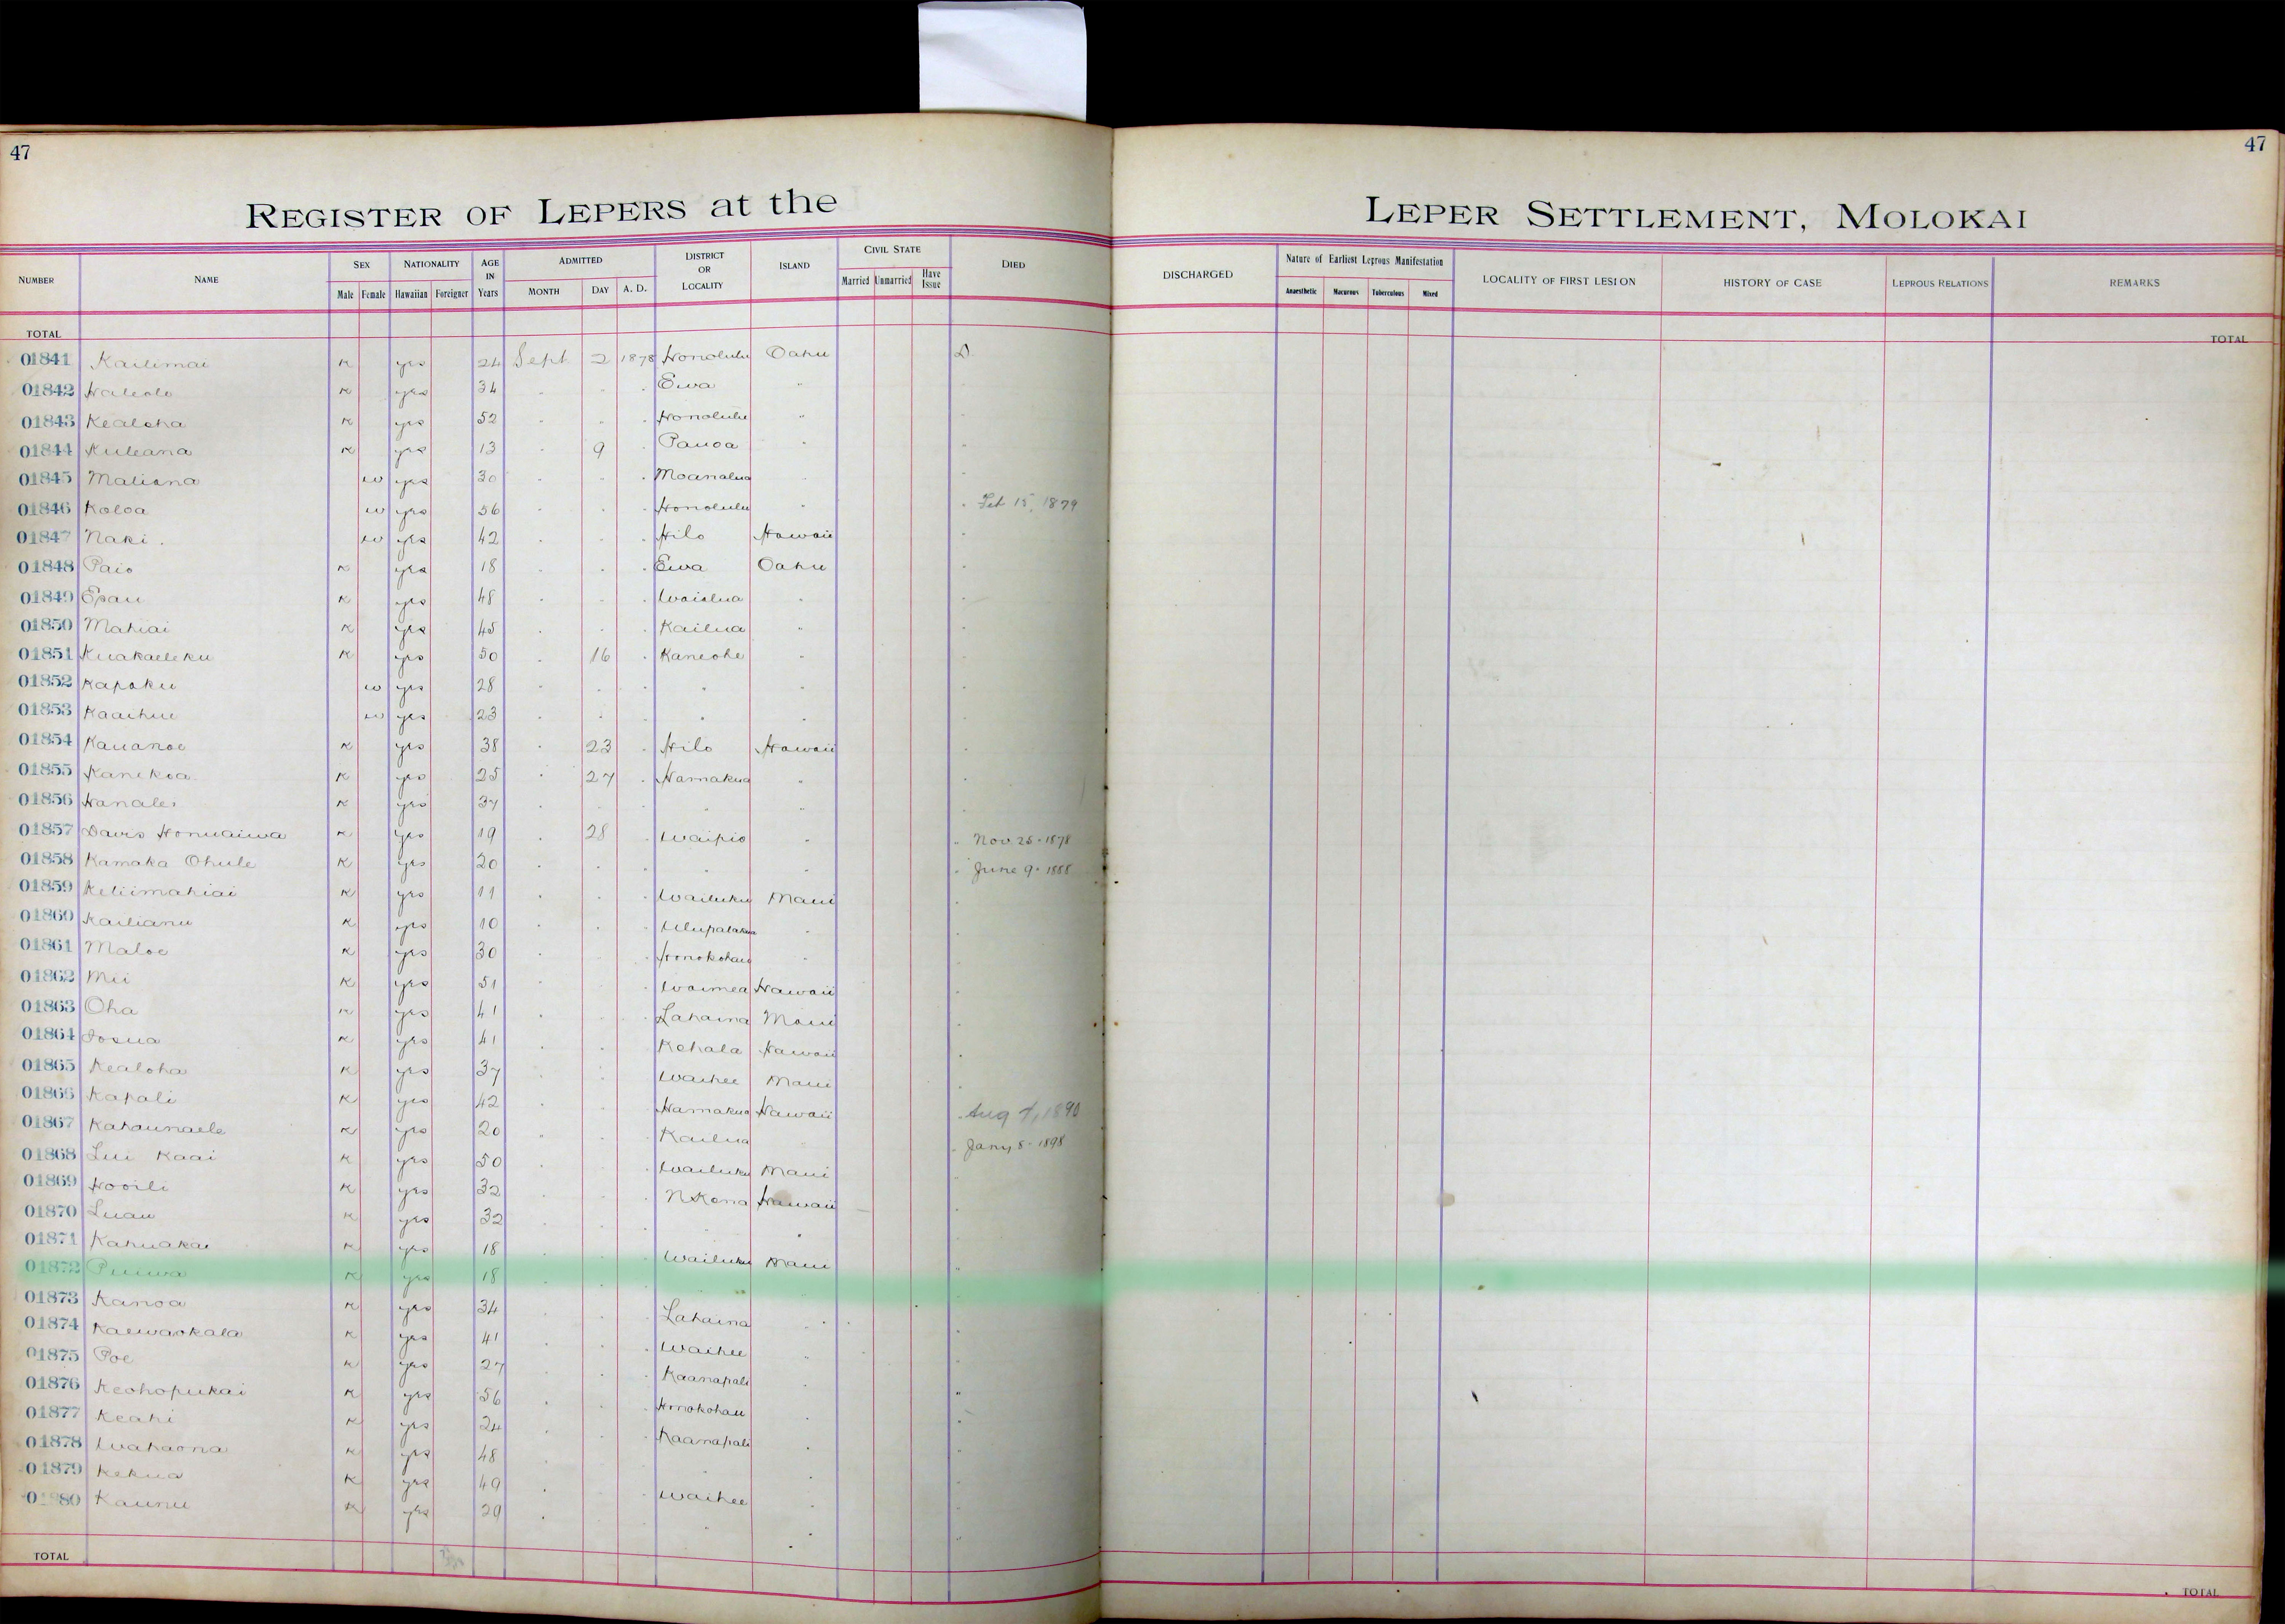 47
47
REGISTER OF LEPERS at the LEPER SETTLEMENT, MOLOKAI
NUMBER NAME SEX NATIONALITY AGE IN Years ADMITTED DISTRICT OR LOCALITY ISLAND CIVIL STATE DIED DISCHARGED Nature of Earliest Leprous Manifestation LOCALITY OF FIRST LESION HISTORY OF CASE LEPROUS RELATIONS REMARKS
Male Female Hawaiian Foreigner MONTH DAY A. D. Married Unmarried Have Issue Anaesthetic Macurous Tuberculous Mixed
TOTAL TOTAL
01841 Kailimai K yes 24 Sept 2 1878 Honolulu Oahu D
01842 Haleolo K yes 34 " " " Ewa "
01843 Kealoha K yes 52 " " " Honolulu "
01844 Kuleana K yes 13 " 9 " Pauoa "
01845 Maliana w yes 30 " " " Moanalua "
01846 Koloa w yes 56 " " " Honolulu " " Feb 15, 1879
01847 Naki w yes 42 " " " Hilo Hawaii
01848 Paio K yes 18 " " " Ewa Oahu
01849 Epau K yes 48 " " " Waialua "
01850 Mahiai K yes 45 " " " Kailua "
01851 Kuakaeleku K yes 50 " 16 " Kaneohe "
01852 Kapoku w yes 28 " " " "
01853 Kaaihue w yes 23 " " " "
01854 Kauanoe K yes 38 " 23 " Hilo Hawaii
01855 Kanekoa K yes 25 " 27 " Hamakua "
01856 Hanalei K yes 37 " " " " "
01857 Davis Honuaiwa K yes 19 " 28 " Waipio " " Nov 25 - 1878
01858 Kamaka Ohule K yes 20 " " " " " " June 9 - 1888
01859 Keliimahiai K yes 11 " " " Wailuku Maui
01860 Kailianu K yes 10 " " " Ulupalakua "
01861 Maloe K yes 30 " " " Honokohau "
01862 Mii K yes 51 " " " Waimea Hawaii
01863 Oha K yes 41 " " " Lahaina Maui
01864 Iosua K yes 41 " " " Kohala Hawaii
01865 Kealoha K yes 37 " " " Waihee Maui
01866 Kapali K yes 42 " " " Hamakua Hawaii " Aug 7, 1890
01867 Kahaunaele K yes 20 " " " Kailua " Jany 8 - 1898
01868 Lui Kaai K yes 50 " " " Wailuku Maui
01869 Hooili K yes 32 " " " N Kona Hawaii
01870 Luau K yes 32 " " " " "
01871 Kahuakai K yes 18 " " " Wailuku Maui
01872 Puuwa K yes 18 " "
01873 Kanoa K yes 34 " " " Lahaina "
01874 Kaewaokala K yes 41 " " " Waihee "
01875 Poe K yes 27 " " " Kaanapali "
01876 Keohopukai K yes 56 " " " Honokohau "
01877 Keahi K yes 24 " " " Kaanapali "
01878 Wahaona K yes 48 "
01879 Kekua K yes 49 " Waihee "
01880 Kaunu K yes 29 " " "
TOTAL TOTAL